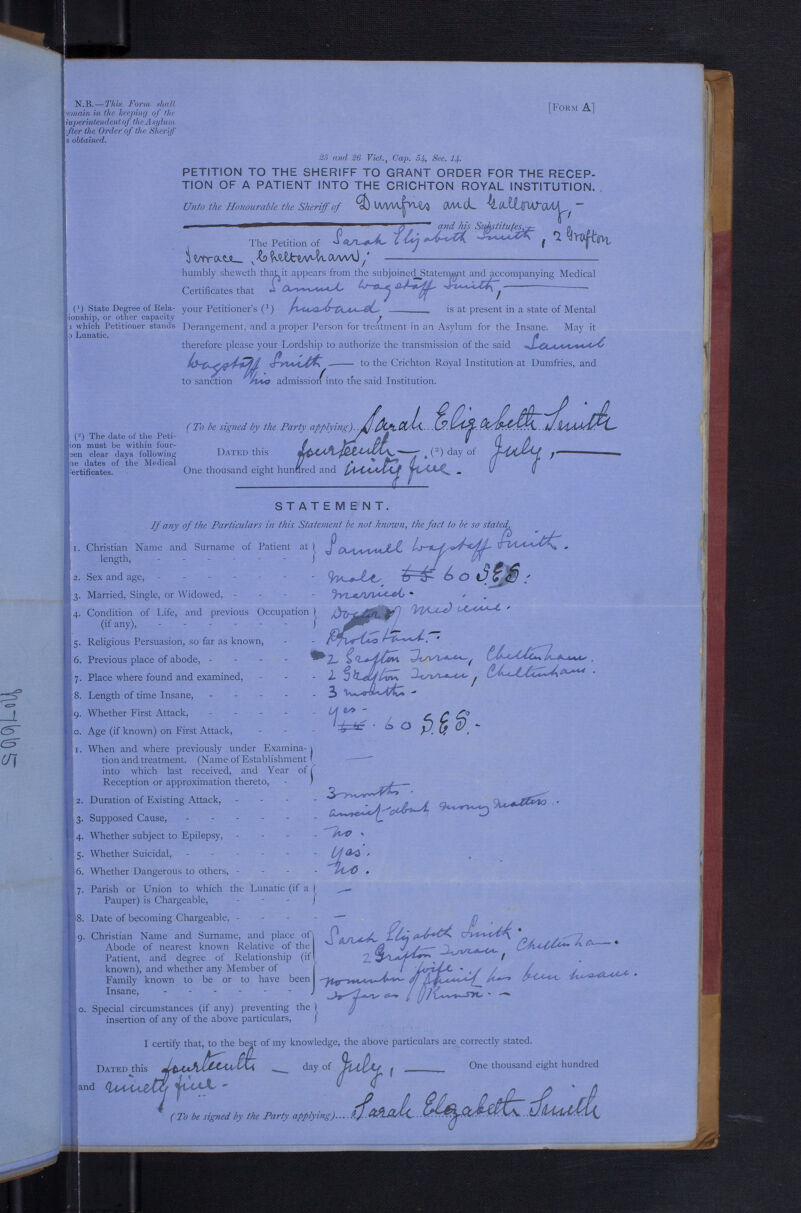 N.B.—This Form shall
remain in the keeping of the
superintendent of the Asylum
after the Order of the Sheriff
is obtained.
[FORM A]
25 and 26 Vict., Cap. 54, Sec. 14.
PETITION TO THE SHERIFF TO GRANT ORDER FOR THE RECEP-
TION OF A PATIENT INTO THE CRICHTON ROYAL INSTITUTION.
Unto the Honourable the Sheriff of Dumfries and Galloway, -
and his Substitutes,
The Petition of Sarah Elizabeth Smith, 2 Grafton
Terrace, Cheltenham,
humbly sheweth that it appears from the subjoined Statement and accompanying Medical
Certificates that Samuel Wagstaff Smith,
(1) State Degree of Rela-
ionship, or other capacity
n which Petitioner stands
o Lunatic.
your Petitioner's (1) husband, is at present in a state of Mental
Derangement, and a proper Person for treatment in an Asylum for the Insane. May it
therefore please your Lordship to authorize the transmission of the said Samuel
Wagstaff Smith, to the Crichton Royal Institution at Dumfries, and
to sanction his admission into the said Institution.
(To be signed by the Party applying).. Sarah Elizabeth Smith
(2) The date of the Peti-
ion must be within four-
een clear days following
he dates of the Medical
Certificates.
DATED this fourteenth (2) day of July,
One thousand eight hundred and ninety five.
STATEMENT.
If any of the Particulars in this Statement be not known, the fact to be so stated.
1. Christian Name and Surname of Patient at length, Samuel Wagstaff Smith.
2. Sex and age, Male. 60 S.E.S.
3. Married, Single, or Widowed, Married.
4. Condition of Life, and previous Occupation (if any), Doctor of Medicine.
5. Religious Persuasion, so far as known, Protestant.
6. Previous place of abode, 2 Grafton Terrace, Cheltenham.
7. Place where found and examined, 2 Grafton Terrace, Cheltenham.
8. Length of time Insane, 3 months -
9. Whether First Attack, yes -
0. Age (if known) on First Attack, 60 S.E.S. -
1. When and where previously under Examina-
tion and treatment. (Name of Establishment
into which last received, and Year of
Reception or approximation thereto, -
2. Duration of Existing Attack, 3 months.
3. Supposed Cause, anxiety about money matters.
4. Whether subject to Epilepsy, no.
5. Whether Suicidal, yes.
6. Whether Dangerous to others, no.
7. Parish or Union to which the Lunatic (if a
Pauper) is Chargeable, —
8. Date of becoming Chargeable, —
9. Christian Name and Surname, and place of
Abode of nearest known Relative of the
Patient, and degree of Relationship (if
known), and whether any Member of
Family known to be or to have been
Insane,
Sarah Elizabeth Smith.
2 Grafton Terrace, Cheltenham.
wife.
no member of family has been insane.
so far as I know. -
0. Special circumstances (if any) preventing the
insertion of any of the above particulars,
I certify that, to the best of my knowledge, the above particulars are correctly stated.
DATED this fourteenth day of July, One thousand eight hundred
and ninety five -
(To be signed by the Party applying).... Sarah Elizabeth Smith